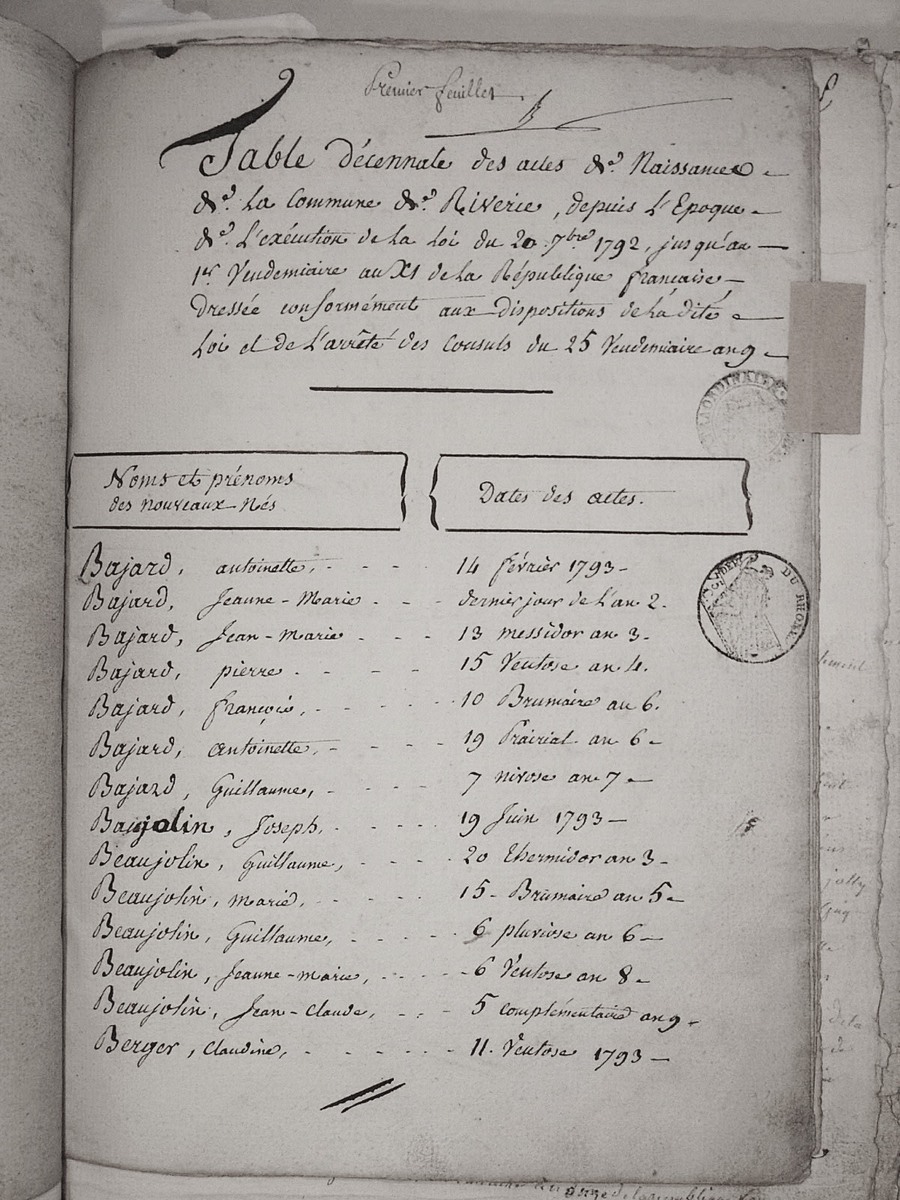 Premier feuillet
Table décennale des actes de Naissance
de la Commune de Riverie, depuis L'Epoque
de L'exécution de la Loi du 20 7bre 1792, jusqu'au
1er Vendemiaire an XI de la République française
dressée conformément aux dispositions de la dite
Loi et de L'arrêté des Consuls du 25 Vendemiaire an 9
Noms et prénoms
des nouveaux Nés
Dates des actes.
Bajard, antoinette, - - - 14 février 1793 -
Bajard, Jeanne-Marie - - - dernier jour de L'an 2.
Bajard, Jean-Marie - - - 13 messidor an 3 -
Bajard, pierre - - - - 15 Ventose an 4.
Bajard, françois, - - - - 10 Brumaire an 6.
Bajard, antoinette, - - - - 19 Prairial an 6 -
Bajard, Guillaume, - - - 7 nivose an 7 -
Baujolin, Joseph, - - - - 19 Juin 1793 -
Beaujolin, Guillaume, - - - - 20 thermidor an 3 -
Beaujolin, marie, - - - - 15 - Brumaire an 5 -
Beaujolin, Guillaume, - - - - 6 pluviose an 6 -
Beaujolin, Jeanne-marie, - - - - 6 Ventose an 8 -
Beaujolin, Jean-Claude, - - - 5 complémentaire an 9 -
Berger, Claudine, - - - - - 11. Ventose 1793 -
DU RHONE